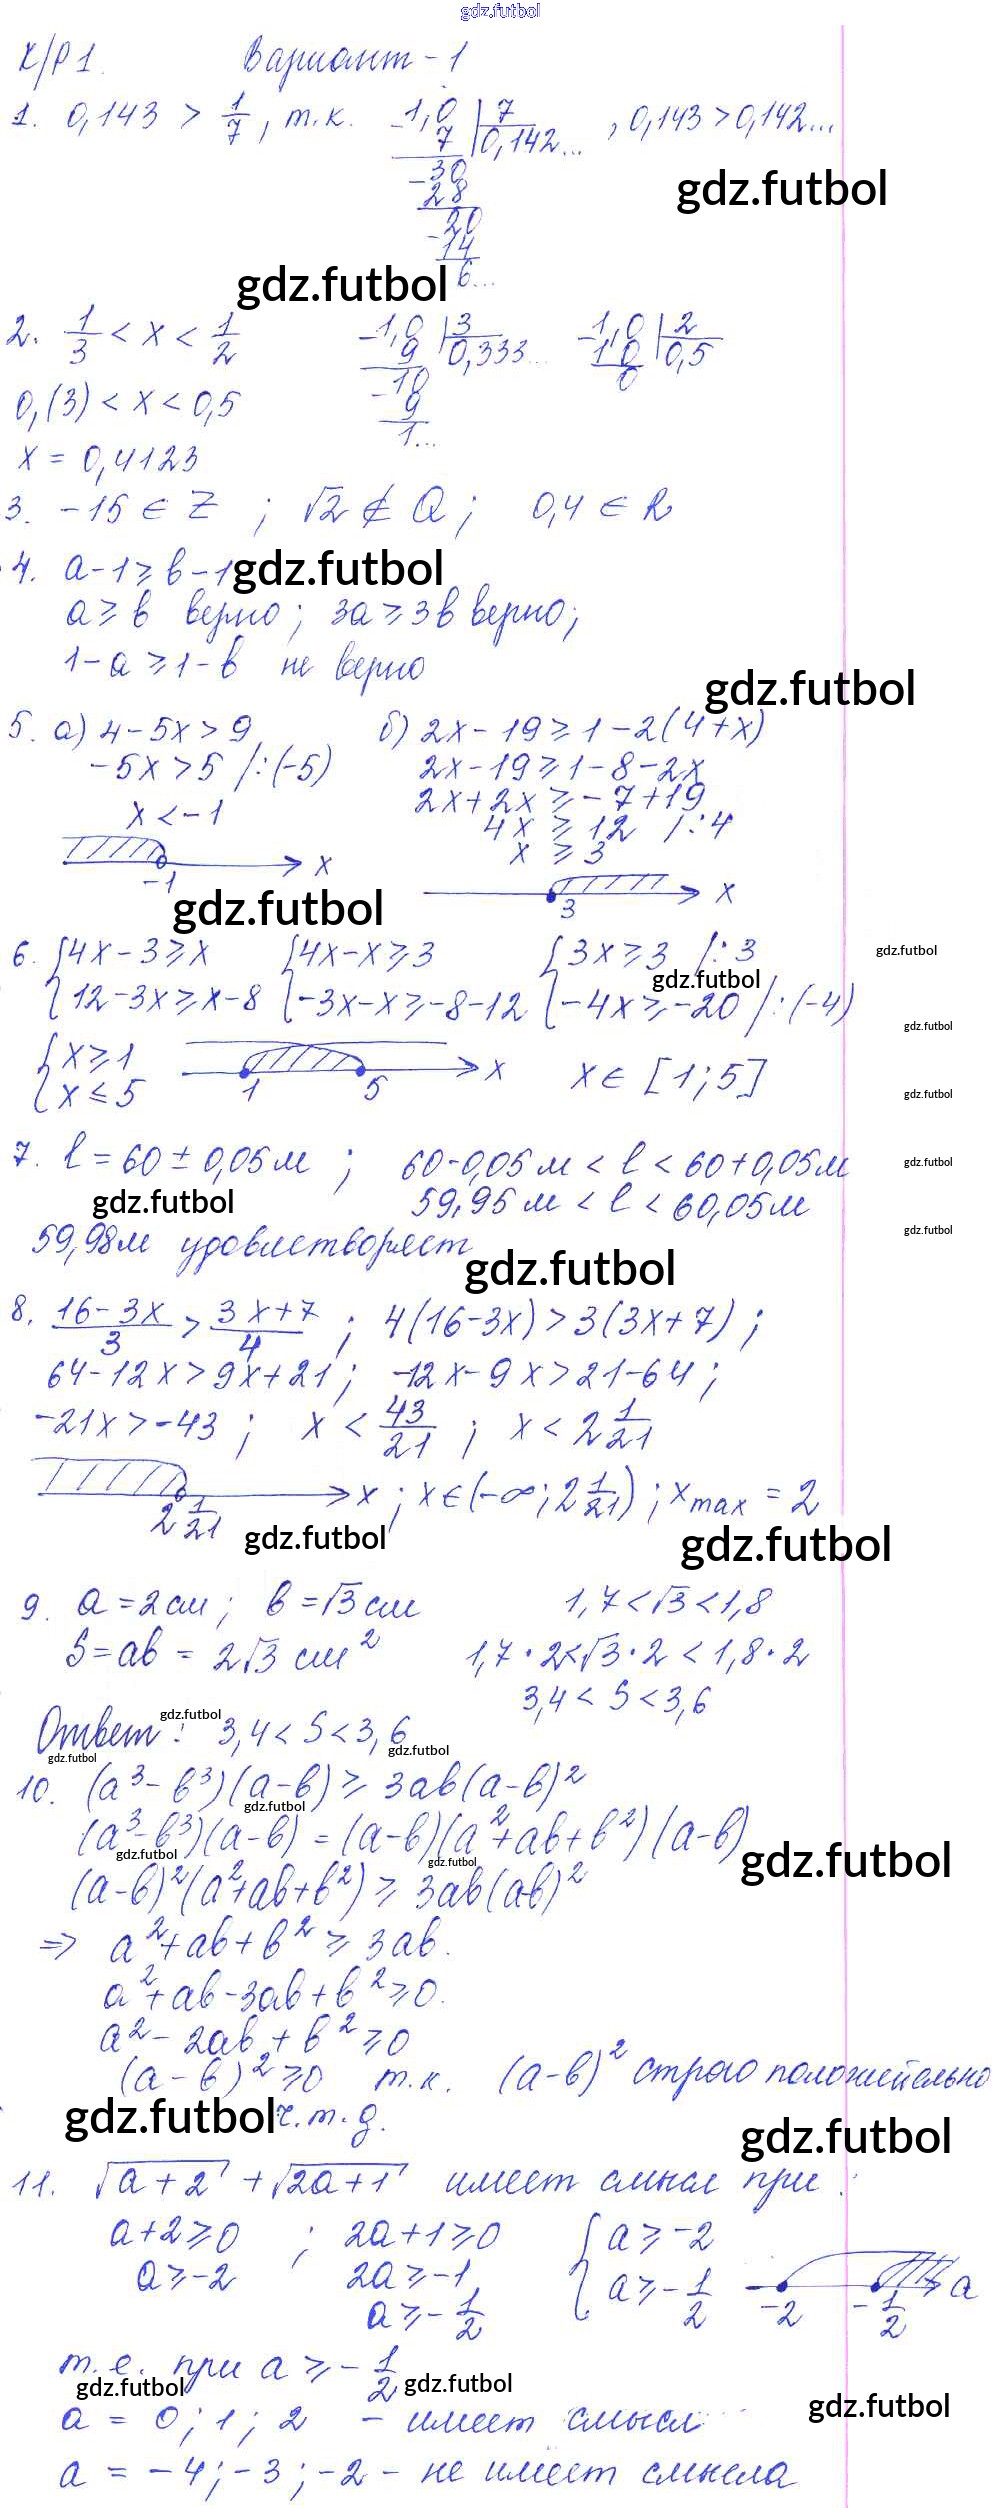 gdz.futbol
К/Р 1. Вариант - 1
1. 0,143 > 1/7, т.к. 1,0 | 7 , 0,143 > 0,142...
7 0,142...
-30
28
-20
14
6...
gdz.futbol
gdz.futbol
2. 1/3 < x < 1/2 -1,0 | 3 -1,0 | 2
9 0,333... 1 0 0,5
0,(3) < x < 0,5 -10 0
9
1...
x = 0,4123
3. -15 ∈ Z ; √2 ∉ Q ; 0,4 ∈ R
4. a-1 ≥ b-1 gdz.futbol
a ≥ b верно ; 3a ≥ 3b верно;
1-a ≥ 1-b не верно
gdz.futbol
5. а) 4-5x > 9 б) 2x-19 ≥ 1-2(4+x)
-5x > 5 /:(-5) 2x-19 ≥ 1-8-2x
x < -1 2x+2x ≥ -7+19
4x ≥ 12 /:4
x ≥ 3
-1 x 3 x
gdz.futbol
6. { 4x-3 ≥ x { 4x-x ≥ 3 { 3x ≥ 3 /:3 gdz.futbol
gdz.futbol
{ 12-3x ≥ x-8 { -3x-x ≥ -8-12 { -4x ≥ -20 /:(-4)
gdz.futbol
{ x ≥ 1
{ x ≤ 5 1 5 x x ∈ [1;5]
gdz.futbol
7. l = 60 ± 0,05 м ; 60-0,05 м < l < 60+0,05 м gdz.futbol
gdz.futbol 59,95 м < l < 60,05 м
gdz.futbol
59,98 м удовлетворяет
gdz.futbol
8. (16-3x)/3 > (3x+7)/4 ; 4(16-3x) > 3(3x+7) ;
64-12x > 9x+21 ; -12x-9x > 21-64 ;
-21x > -43 ; x < 43/21 ; x < 2 1/21
2 1/21 x ; x ∈ (-∞; 2 1/21) ; x max = 2
gdz.futbol gdz.futbol
9. a = 2 см ; b = √3 см 1,7 < √3 < 1,8
S = ab = 2√3 см² 1,7·2 < √3·2 < 1,8·2
3,4 < S < 3,6
gdz.futbol
Ответ: 3,4 < S < 3,6
gdz.futbol gdz.futbol
10. (a³-b³)(a-b) ≥ 3ab(a-b)²
gdz.futbol
(a³-b³)(a-b) = (a-b)(a²+ab+b²)(a-b)
gdz.futbol gdz.futbol gdz.futbol
(a-b)²(a²+ab+b²) ≥ 3ab(ab)²
⇒ a²+ab+b² ≥ 3ab.
a²+ab-3ab+b² ≥ 0.
a²-2ab+b² ≥ 0
(a-b)² ≥ 0 т.к. (a-b)² строго положительно
gdz.futbol ч.т.д. gdz.futbol
11. √(a+2) + √(2a+1) имеет смысл при:
a+2 ≥ 0 ; 2a+1 ≥ 0 { a ≥ -2
a ≥ -2 2a ≥ -1 { a ≥ -1/2 -2 -1/2 a
a ≥ -1/2
т.е. при a ≥ -1/2
gdz.futbol gdz.futbol gdz.futbol
a = 0 ; 1 ; 2 - имеет смысл
a = -4 ; -3 ; -2 - не имеет смысла